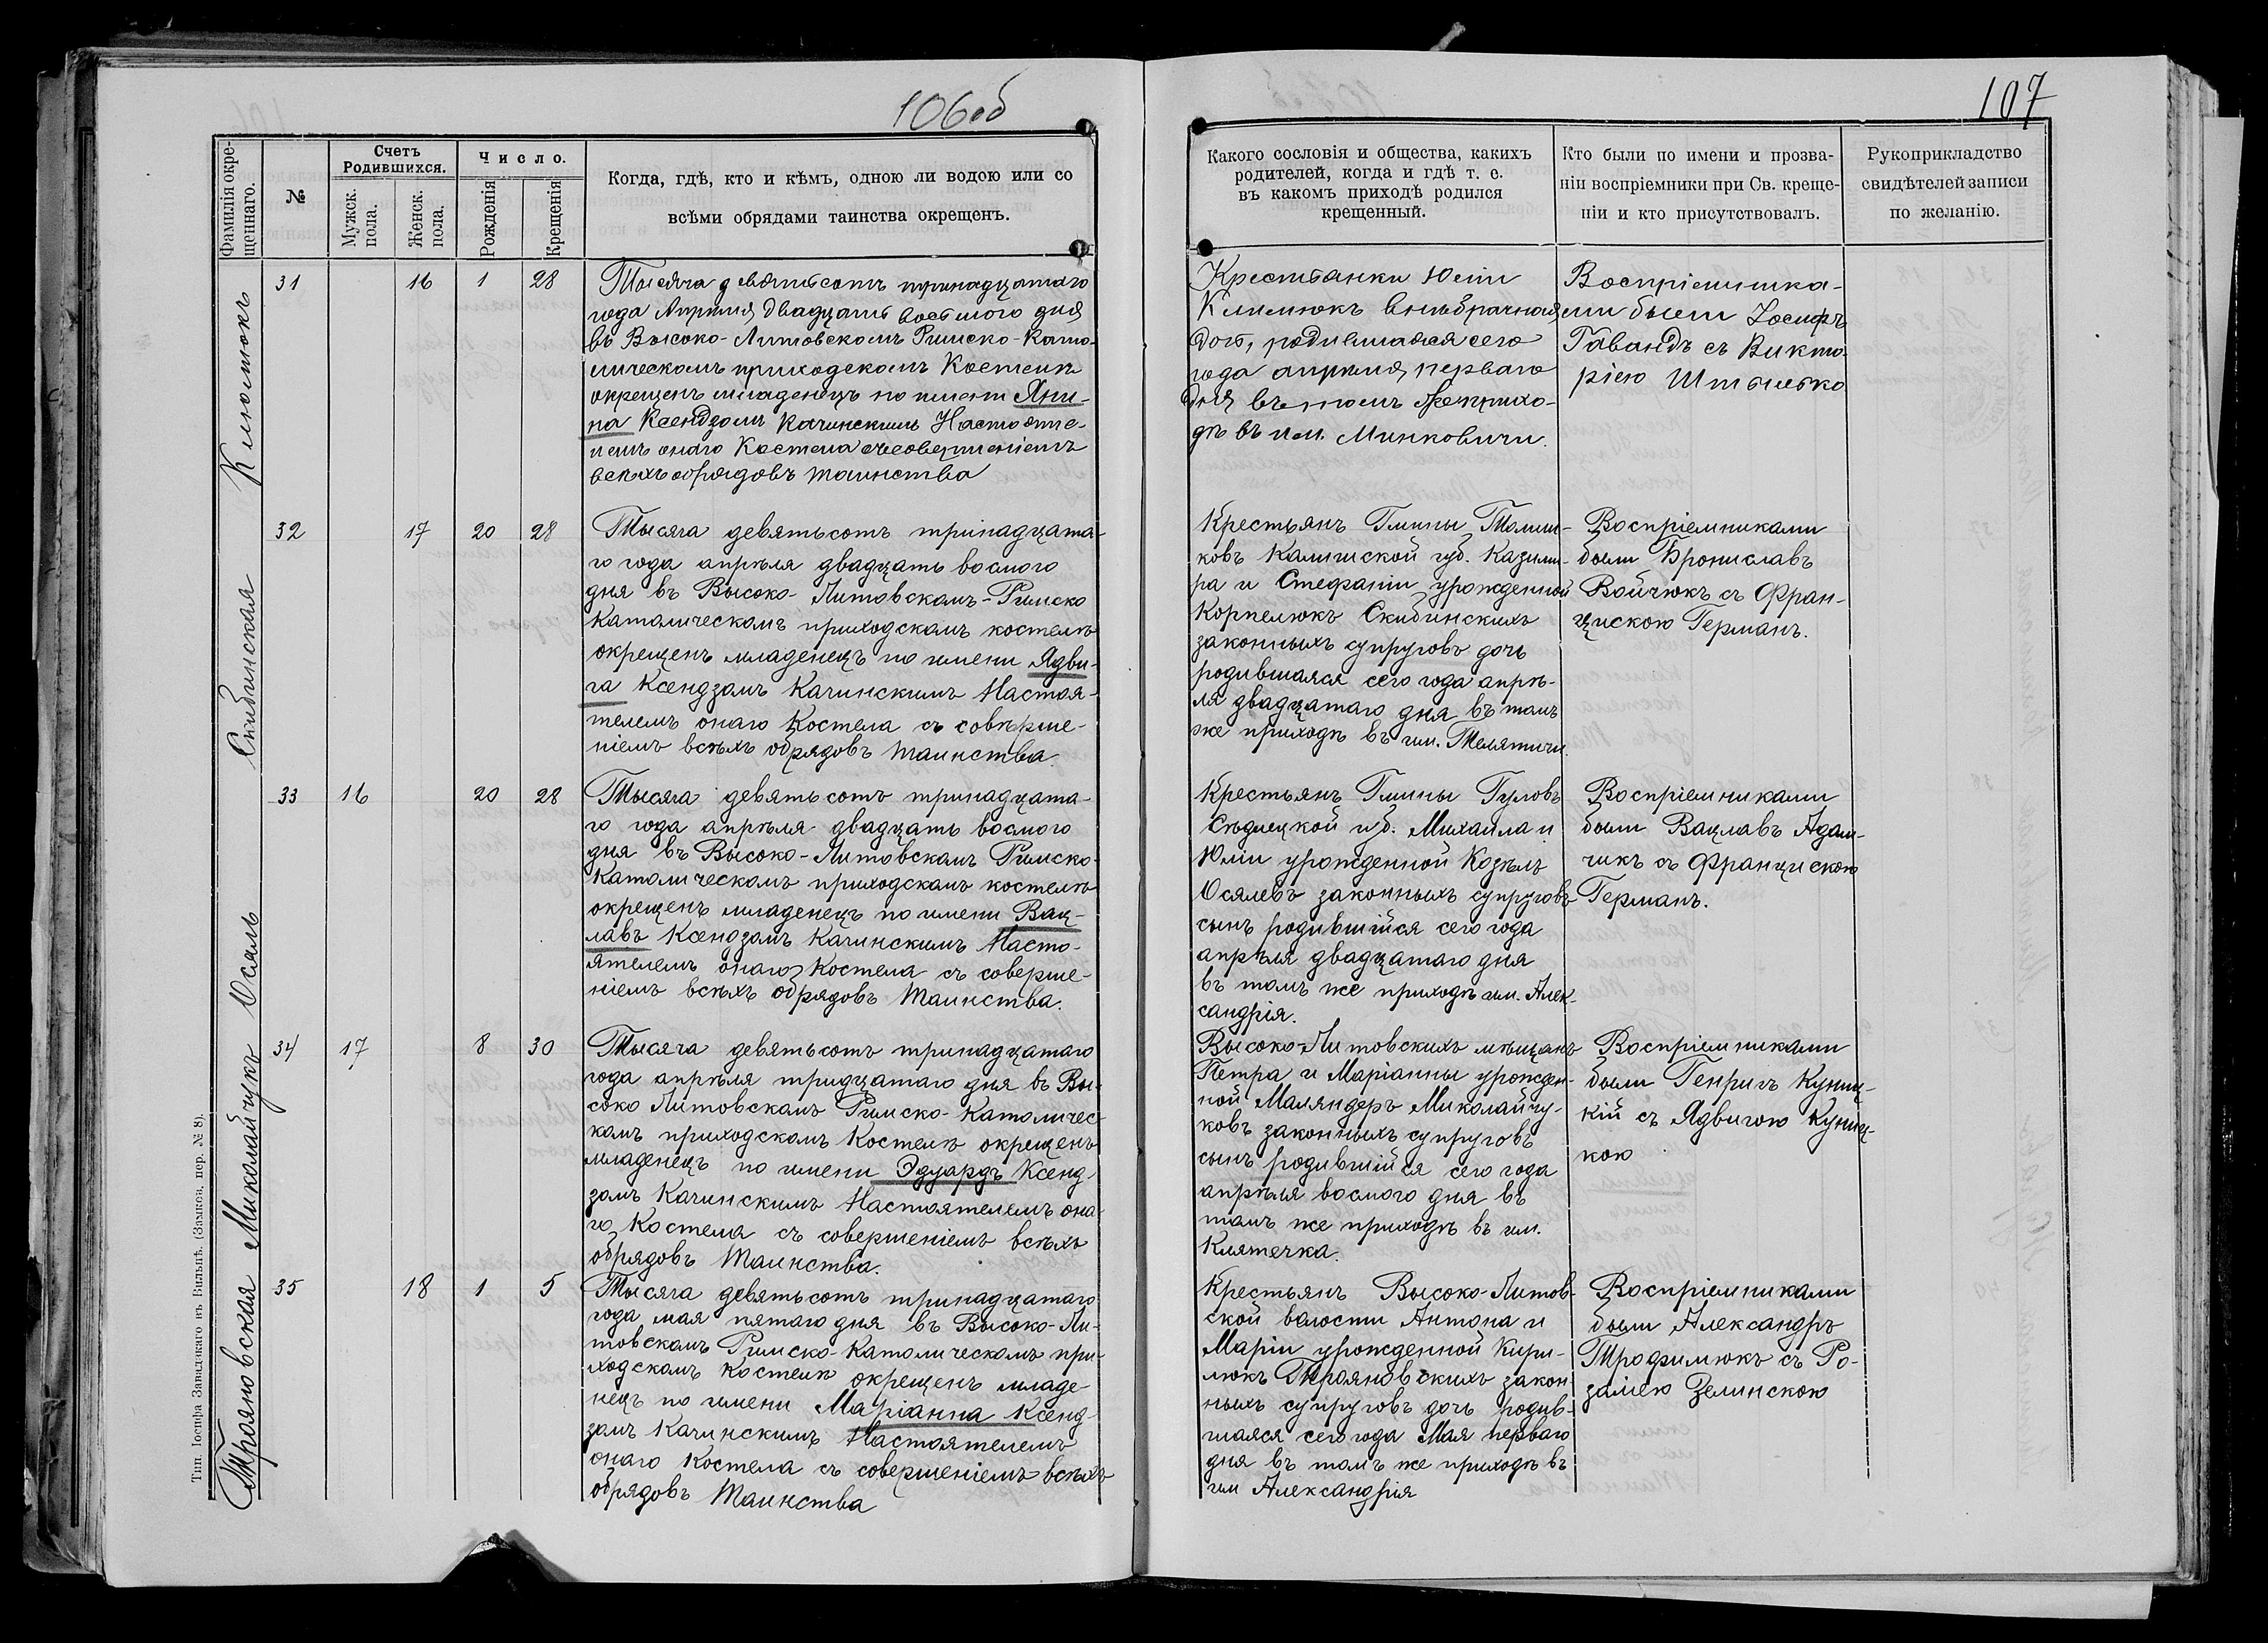 106об
Фамилія окре-
щеннаго.
№
Счетъ
Родившихся.
Мужск.
пола.
Женск.
пола.
Число.
Рожденія
Крещенія
Когда, гдѣ, кто и кѣмъ, одною ли водою или со
всѣми обрядами таинства окрещенъ.
Климюкъ
31
16
1
28
Тысяча девятьсотъ тринадцатаго
года Апрѣля двадцать восьмого дня
въ Высоко-Литовскомъ Римско-Като-
лическомъ приходскомъ Костелѣ
окрещенъ младенецъ по имени Яни-
на Ксендзомъ Качинскимъ Настояте-
лемъ онаго Костела съ совершеніемъ
всѣхъ обрядовъ таинства
Скибинская
32
17
20
28
Тысяча девятьсотъ тринадцата-
го года апрѣля двадцать восмого
дня въ Высоко-Литовскомъ-Римско
Католическомъ приходскомъ костелѣ
окрещенъ младенецъ по имени Ядви-
га Ксендзомъ Качинскимъ Настоя-
телемъ онаго Костела съ соверше-
ніемъ всѣхъ обрядовъ Таинства.
Осяль
33
16
20
28
Тысяча девятьсотъ тринадцата-
го года апрѣля двадцать восмого
дня въ Высоко-Литовскомъ Римско-
Католическомъ приходскомъ костелѣ
окрещенъ младенецъ по имени Вац-
лавъ Ксендзомъ Качинскимъ Насто-
ятелемъ онаго Костела съ соверше-
ніемъ всѣхъ обрядовъ Таинства.
Миколайчукъ
34
17
8
30
Тысяча девятьсотъ тринадцатаго
года апрѣля тридцатаго дня въ Вы-
соко Литовскомъ Римско-Католичес-
комъ приходскомъ Костелѣ окрещенъ
младенецъ по имени Эдуардъ Ксенд-
зомъ Качинскимъ Настоятелемъ она-
го Костела съ совершеніемъ всѣхъ
обрядовъ Таинства.
Трояновская
35
18
1
5
Тысяча девятьсотъ тринадцатаго
года мая пятаго дня въ Высоко-Ли-
товскомъ Римско-Католическомъ при-
ходскомъ Костелѣ окрещенъ младе-
нецъ по имени Маріанна Ксенд-
зомъ Качинскимъ Настоятелемъ
онаго Костела съ совершеніемъ всѣхъ
обрядовъ Таинства
Тип. Іосифа Завадзкаго въ Вильнѣ. (Замков. пер. № 8).
107
Какого сословія и общества, какихъ
родителей, когда и гдѣ т. е.
въ какомъ приходѣ родился
крещенный.
Кто были по имени и прозва-
ніи воспріемники при Св. креще-
ніи и кто присутствовалъ.
Рукоприкладство
свидѣтелей записи
по желанію.
Крестьянки Юліи
Климюкъ внѣбрачная
дочь, родившаяся сего
года апрѣля перваго
дня въ томъ же прихо-
дѣ въ им. Минковичи.
Воспріемника-
ми были Іосифъ
Гавандъ съ Викто-
ріею
Крестьянъ Гмины Томиш-
ковъ Калишской губ. Казими-
ра и Стефаніи урожденной
Корпелюкъ Скибинскихъ
законныхъ супруговъ дочь
родившаяся сего года апрѣ-
ля двадцатаго дня въ томъ
же приходѣ въ им. Телятичи.
Воспріемниками
были Брониславъ
Войчюкъ съ Фран-
цискою Германъ.
Крестьянъ Гмины Гуловъ
Сѣдлецкой губ. Михаила и
Юліи урожденной Козѣлъ
Осялевъ законныхъ супруговъ
сынъ родившійся сего года
апрѣля двадцатаго дня
въ томъ же приходѣ им. Алек-
сандрія.
Воспріемниками
были Вацлавъ Адам-
чикъ съ Францискою
Германъ.
Высоко-Литовскихъ мѣщанъ
Петра и Маріанны урожден-
ной Маляндеръ Миколайчу-
ковъ законныхъ супруговъ
сынъ родившійся сего года
апрѣля восмого дня въ
томъ же приходѣ въ им.
Клятечка.
Воспріемниками
были Генрихъ Куниц-
кій съ Ядвигою Куниц-
кою
Крестьянъ Высоко-Литов-
ской волости Антона и
Маріи урожденной Кири-
люкъ Трояновскихъ закон-
ныхъ супруговъ дочь родив-
шаяся сего года Мая перваго
дня въ томъ же приходѣ въ
им Александрія
Воспріемниками
были Александръ
Трофимюкъ съ Ро-
заліею Зелинскою